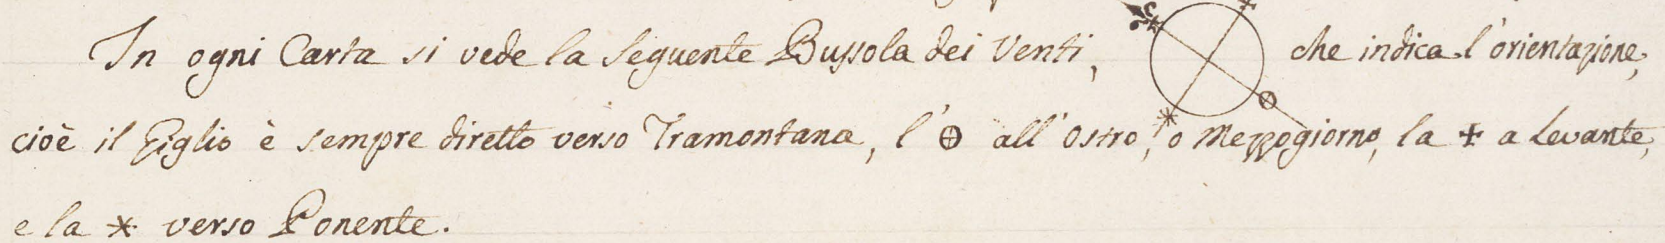 In ogni Carta si vede la seguente Bussola dei Venti, che indica l'orientazione,
cioè il Giglio è sempre diretto verso Tramontana, l' ⊕ all'Ostro, o Mezzogiorno, la ✚ a Levante,
e la * verso Ponente.